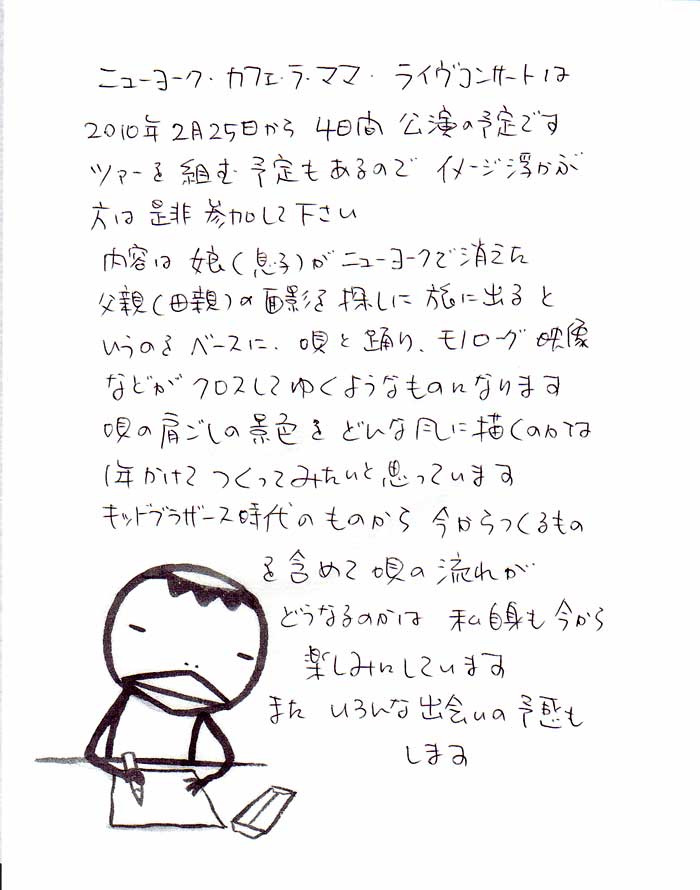 ニューヨーク・カフェ・ラ・ママ・ライヴコンサートは
2010年2月25日から 4日間 公演の予定です
ツァーを組む予定もあるので イメージ浮かぶ
方は是非参加して下さい
内容は娘(息子)がニューヨークで消えた
父親(母親)の面影を探しに旅に出ると
いうのをベースに、唄と踊り、モノローグ映像
などがクロスしてゆくようなものになります
唄の肩ごしの景色をどんな風に描くのかは
1年かけてつくってみたいと思っています
キッドブラザース時代のものから 今からつくるもの
を含めて唄の流れが
どうなるのかは 私自身も今から
楽しみにしています
また いろんな出会いの予感も
します